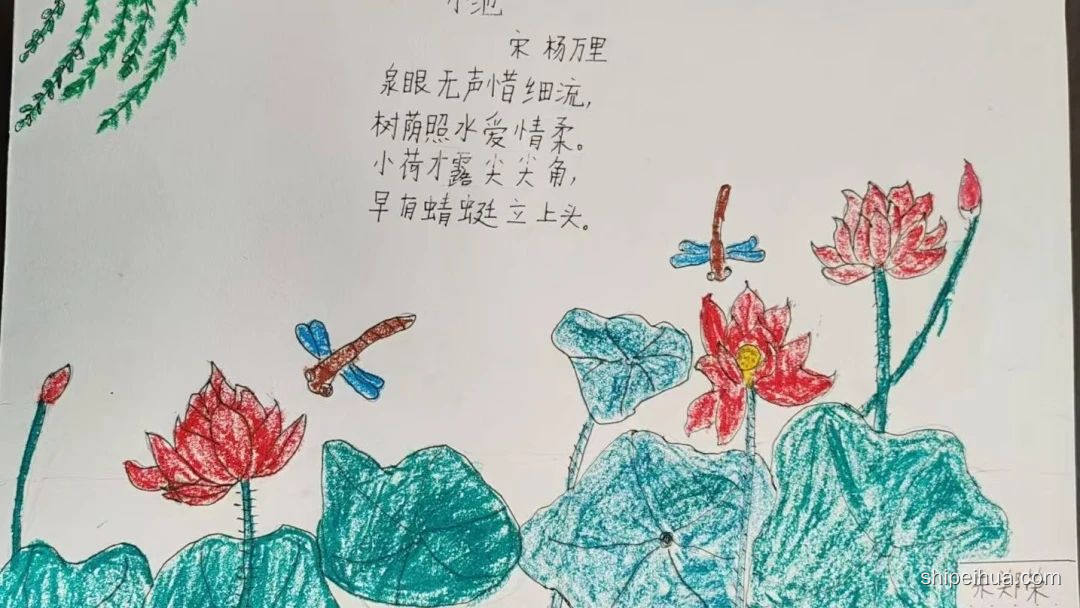 小池
宋 杨万里
泉眼无声惜细流,
树荫照水爱情柔。
小荷才露尖尖角,
早有蜻蜓立上头。
shipeihua.com